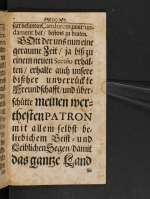 GOtt der uns nun eine
geraume Zeit / ja biß zu
einem neuen Seculo erhal-
ten / erhalte auch unsere
bißher unverrückte
Freundschafft / und über-
schütte meinen wer-
thesten PATRON
mit allem selbst be-
liebichem Geist- und
Leiblichen Segen / damit
das gantze Land